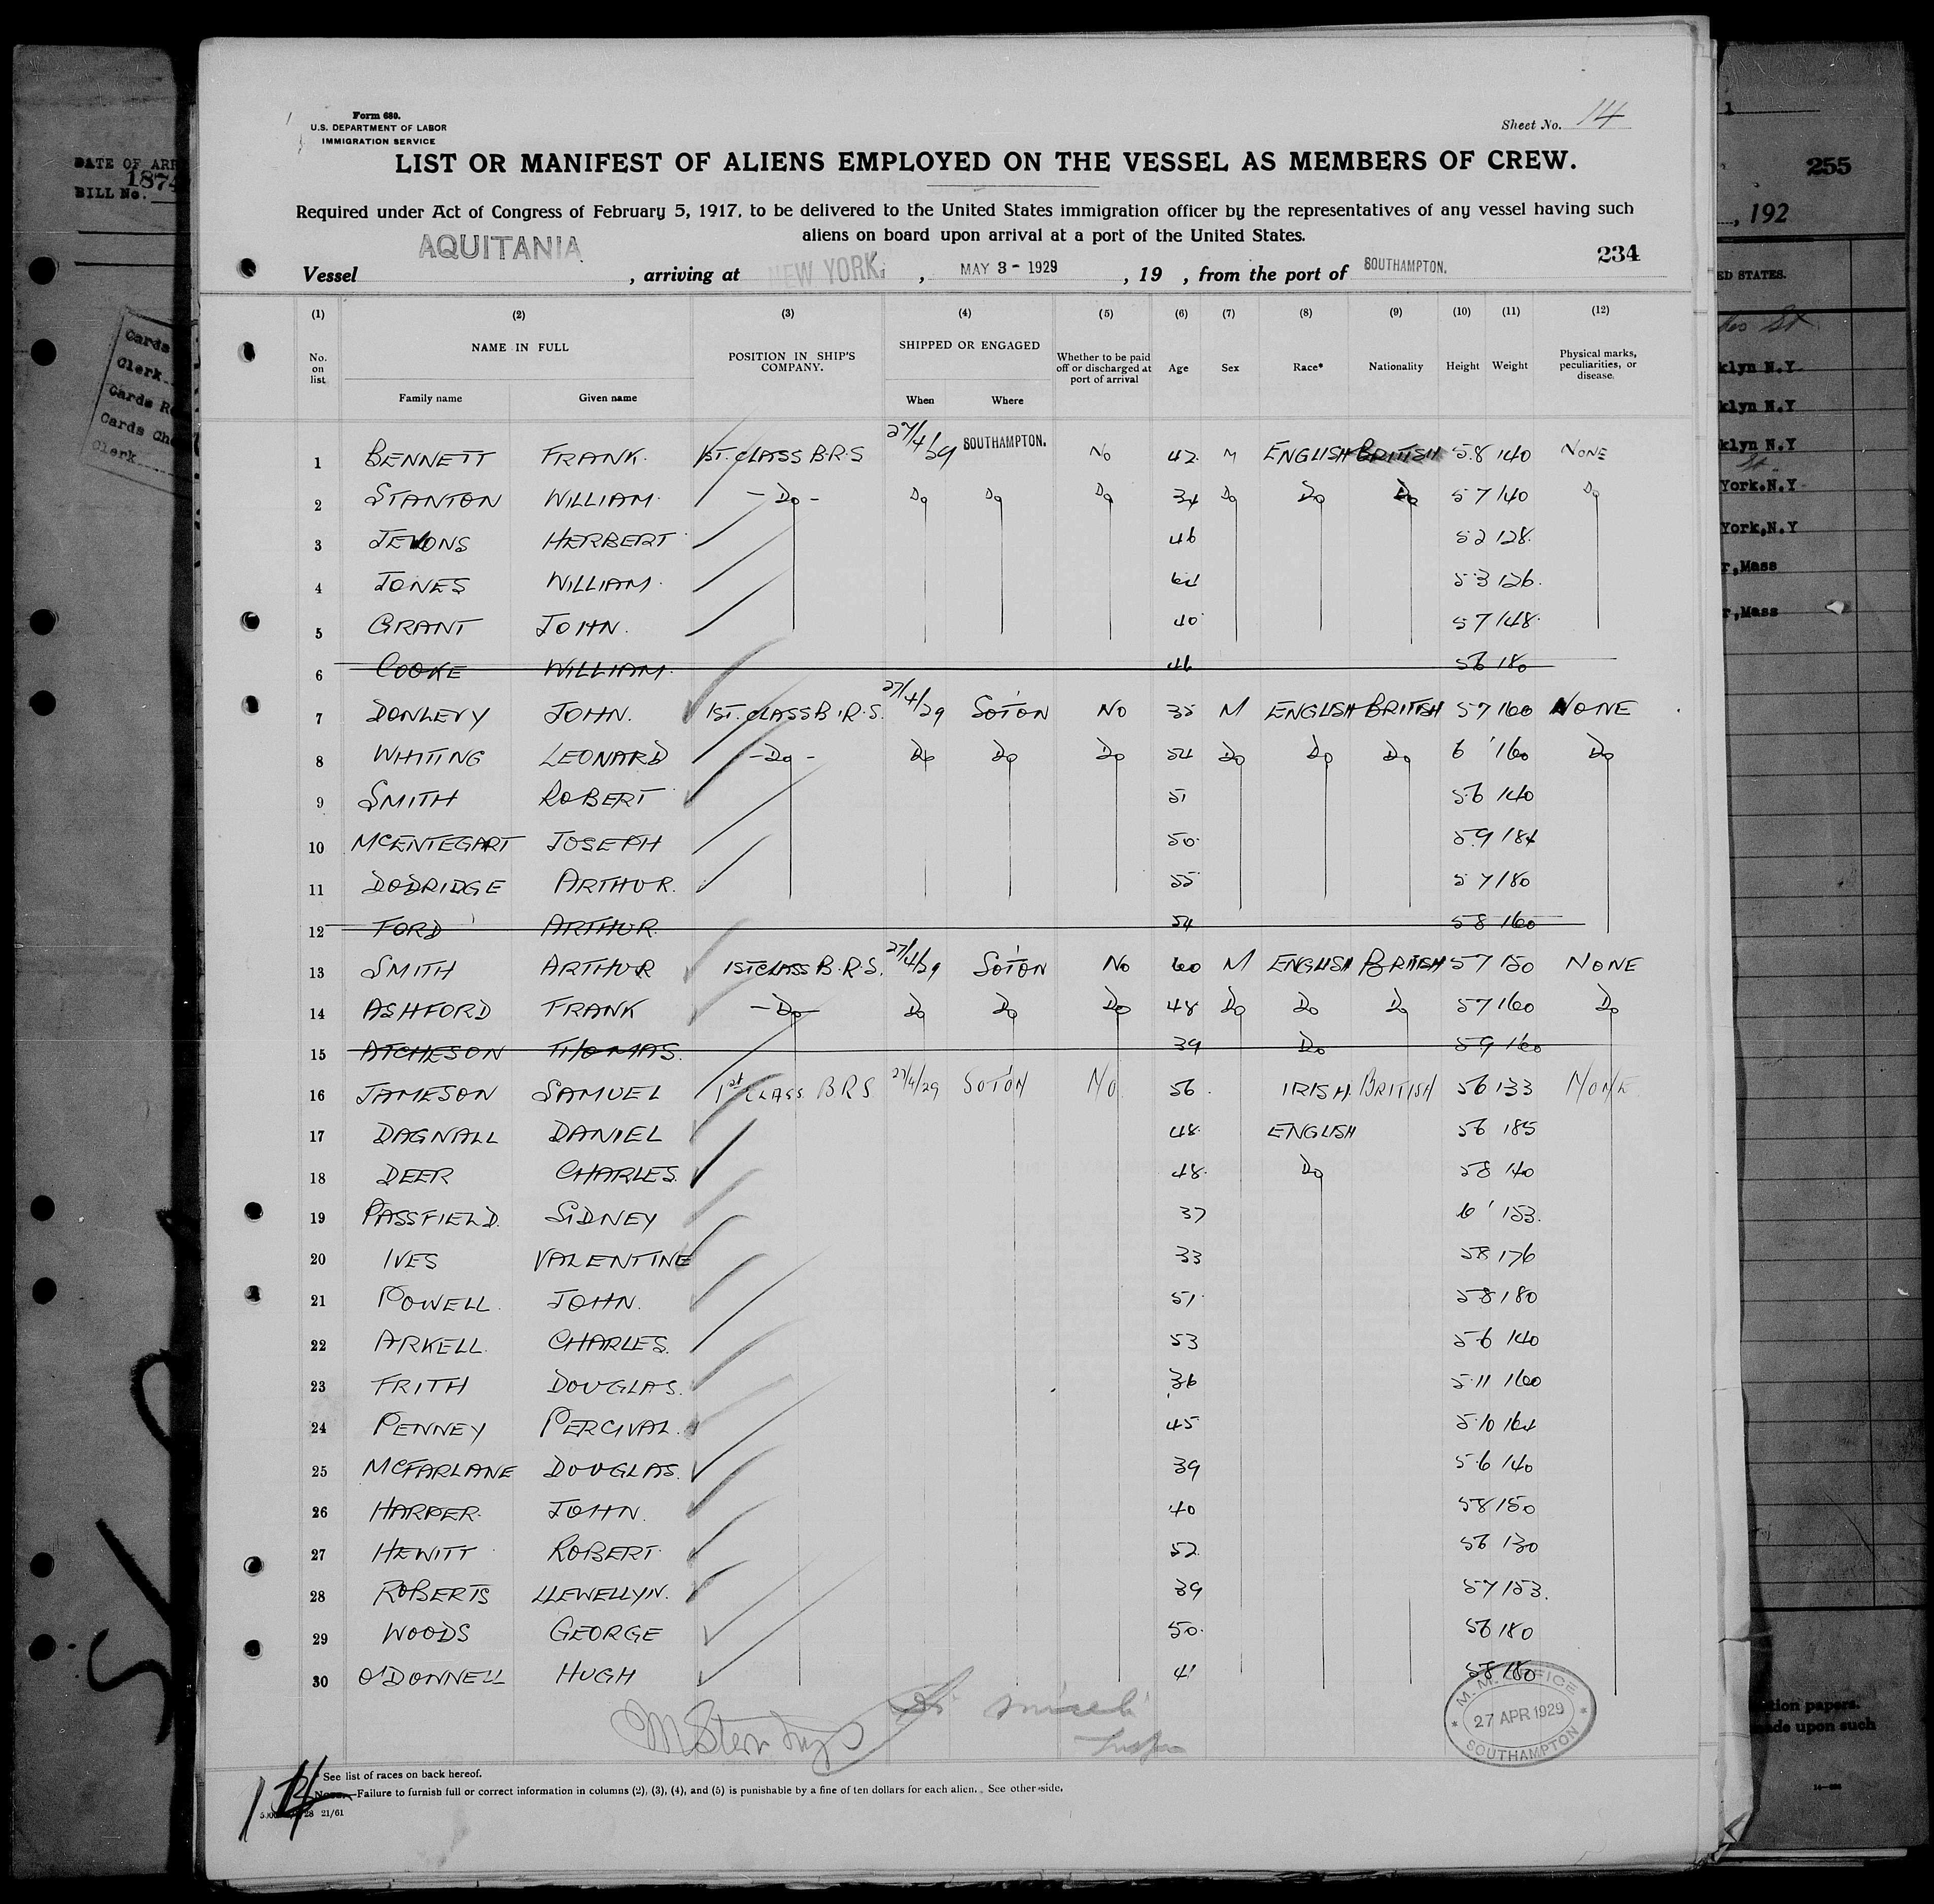 Form 689.
U.S. DEPARTMENT OF LABOR
IMMIGRATION SERVICE
Sheet No. 14
LIST OR MANIFEST OF ALIENS EMPLOYED ON THE VESSEL AS MEMBERS OF CREW.
Required under Act of Congress of February 5, 1917, to be delivered to the United States immigration officer by the representatives of any vessel having such
aliens on board upon arrival at a port of the United States.
234
Vessel AQUITANIA, arriving at NEW YORK, MAY 3 - 1929, 19 , from the port of SOUTHAMPTON.
(1) (2) (3) (4) (5) (6) (7) (8) (9) (10) (11) (12)
No. on list NAME IN FULL POSITION IN SHIP'S COMPANY. SHIPPED OR ENGAGED Whether to be paid off or discharged at port of arrival Age Sex Race* Nationality Height Weight Physical marks, peculiarities, or disease.
Family name Given name When Where
1 BENNETT FRANK. 1ST. CLASS B.R.S 27/4/29 SOUTHAMPTON. No 42 M ENGLISH BRITISH 5.8 140 NONE
2 STANTON WILLIAM. - Do - Do Do Do 34 Do Do Do 5 7 140 Do
3 JEVONS HERBERT 46 5 2 128.
4 JONES WILLIAM. 64 5 3 126.
5 GRANT JOHN. 40 5 7 148.
6 COOKE WILLIAM. 46 5 6 180
7 DONLEVY JOHN. 1ST. CLASS B.R.S. 27/4/29 SOTON No 35 M ENGLISH BRITISH 5 7 160 NONE
8 WHITING LEONARD - Do - Do Do Do 54 Do Do Do 6 ' 160 Do
9 SMITH ROBERT 51 5.6 140
10 MCENTEGART JOSEPH 50. 5.9 184
11 DODRIDGE ARTHUR. 55 5 7 180
12 FORD ARTHUR. 54 5 8 160
13 SMITH ARTHUR 1ST CLASS B.R.S. 27/4/29 SOTON No 60 M ENGLISH BRITISH 5 7 150 NONE
14 ASHFORD FRANK - Do - Do Do Do 48 Do Do Do 5 7 160 Do
15 ATCHESON THOMAS. 39 Do 5 9 160
16 JAMESON SAMUEL 1st CLASS BRS 27/4/29 SOTON NO 56. IRISH. BRITISH 5 6 133 NONE
17 DAGNALL DANIEL 48. ENGLISH 5 6 185
18 DEER CHARLES. 48. Do 5 8 140
19 PASSFIELD. SIDNEY 37 6 ' 153.
20 IVES VALENTINE 33 5 8 176
21 POWELL. JOHN. 51. 5 8 180
22 ARKELL. CHARLES. 53 5 6 140
23 FRITH DOUGLAS. 36 5.11 160
24 PENNEY PERCIVAL. 45 5.10 164
25 MCFARLANE DOUGLAS. 39 5.6 140
26 HARPER. JOHN. 40 5 8 150
27 HEWITT ROBERT. 52 5 6 130
28 ROBERTS LLEWELLYN. 39 5 7 153.
29 WOODS GEORGE 50. 5 6 180
30 O'DONNELL HUGH 41 5 8 180
M. M. OFFICE
27 APR 1929
SOUTHAMPTON
* See list of races on back hereof.
NOTE.—Failure to furnish full or correct information in columns (2), (3), (4), and (5) is punishable by a fine of ten dollars for each alien. See other side.
21/61
14
DATE OF ARR
1874
BILL No.
Cards
Clerk
Cards R
Cards Che
Clerk
255
, 192
ED STATES.
klyn N.Y.
klyn N.Y
klyn N.Y
York.N.Y
York,N.Y
r,Mass
r,Mass
tion papers.
ade upon such